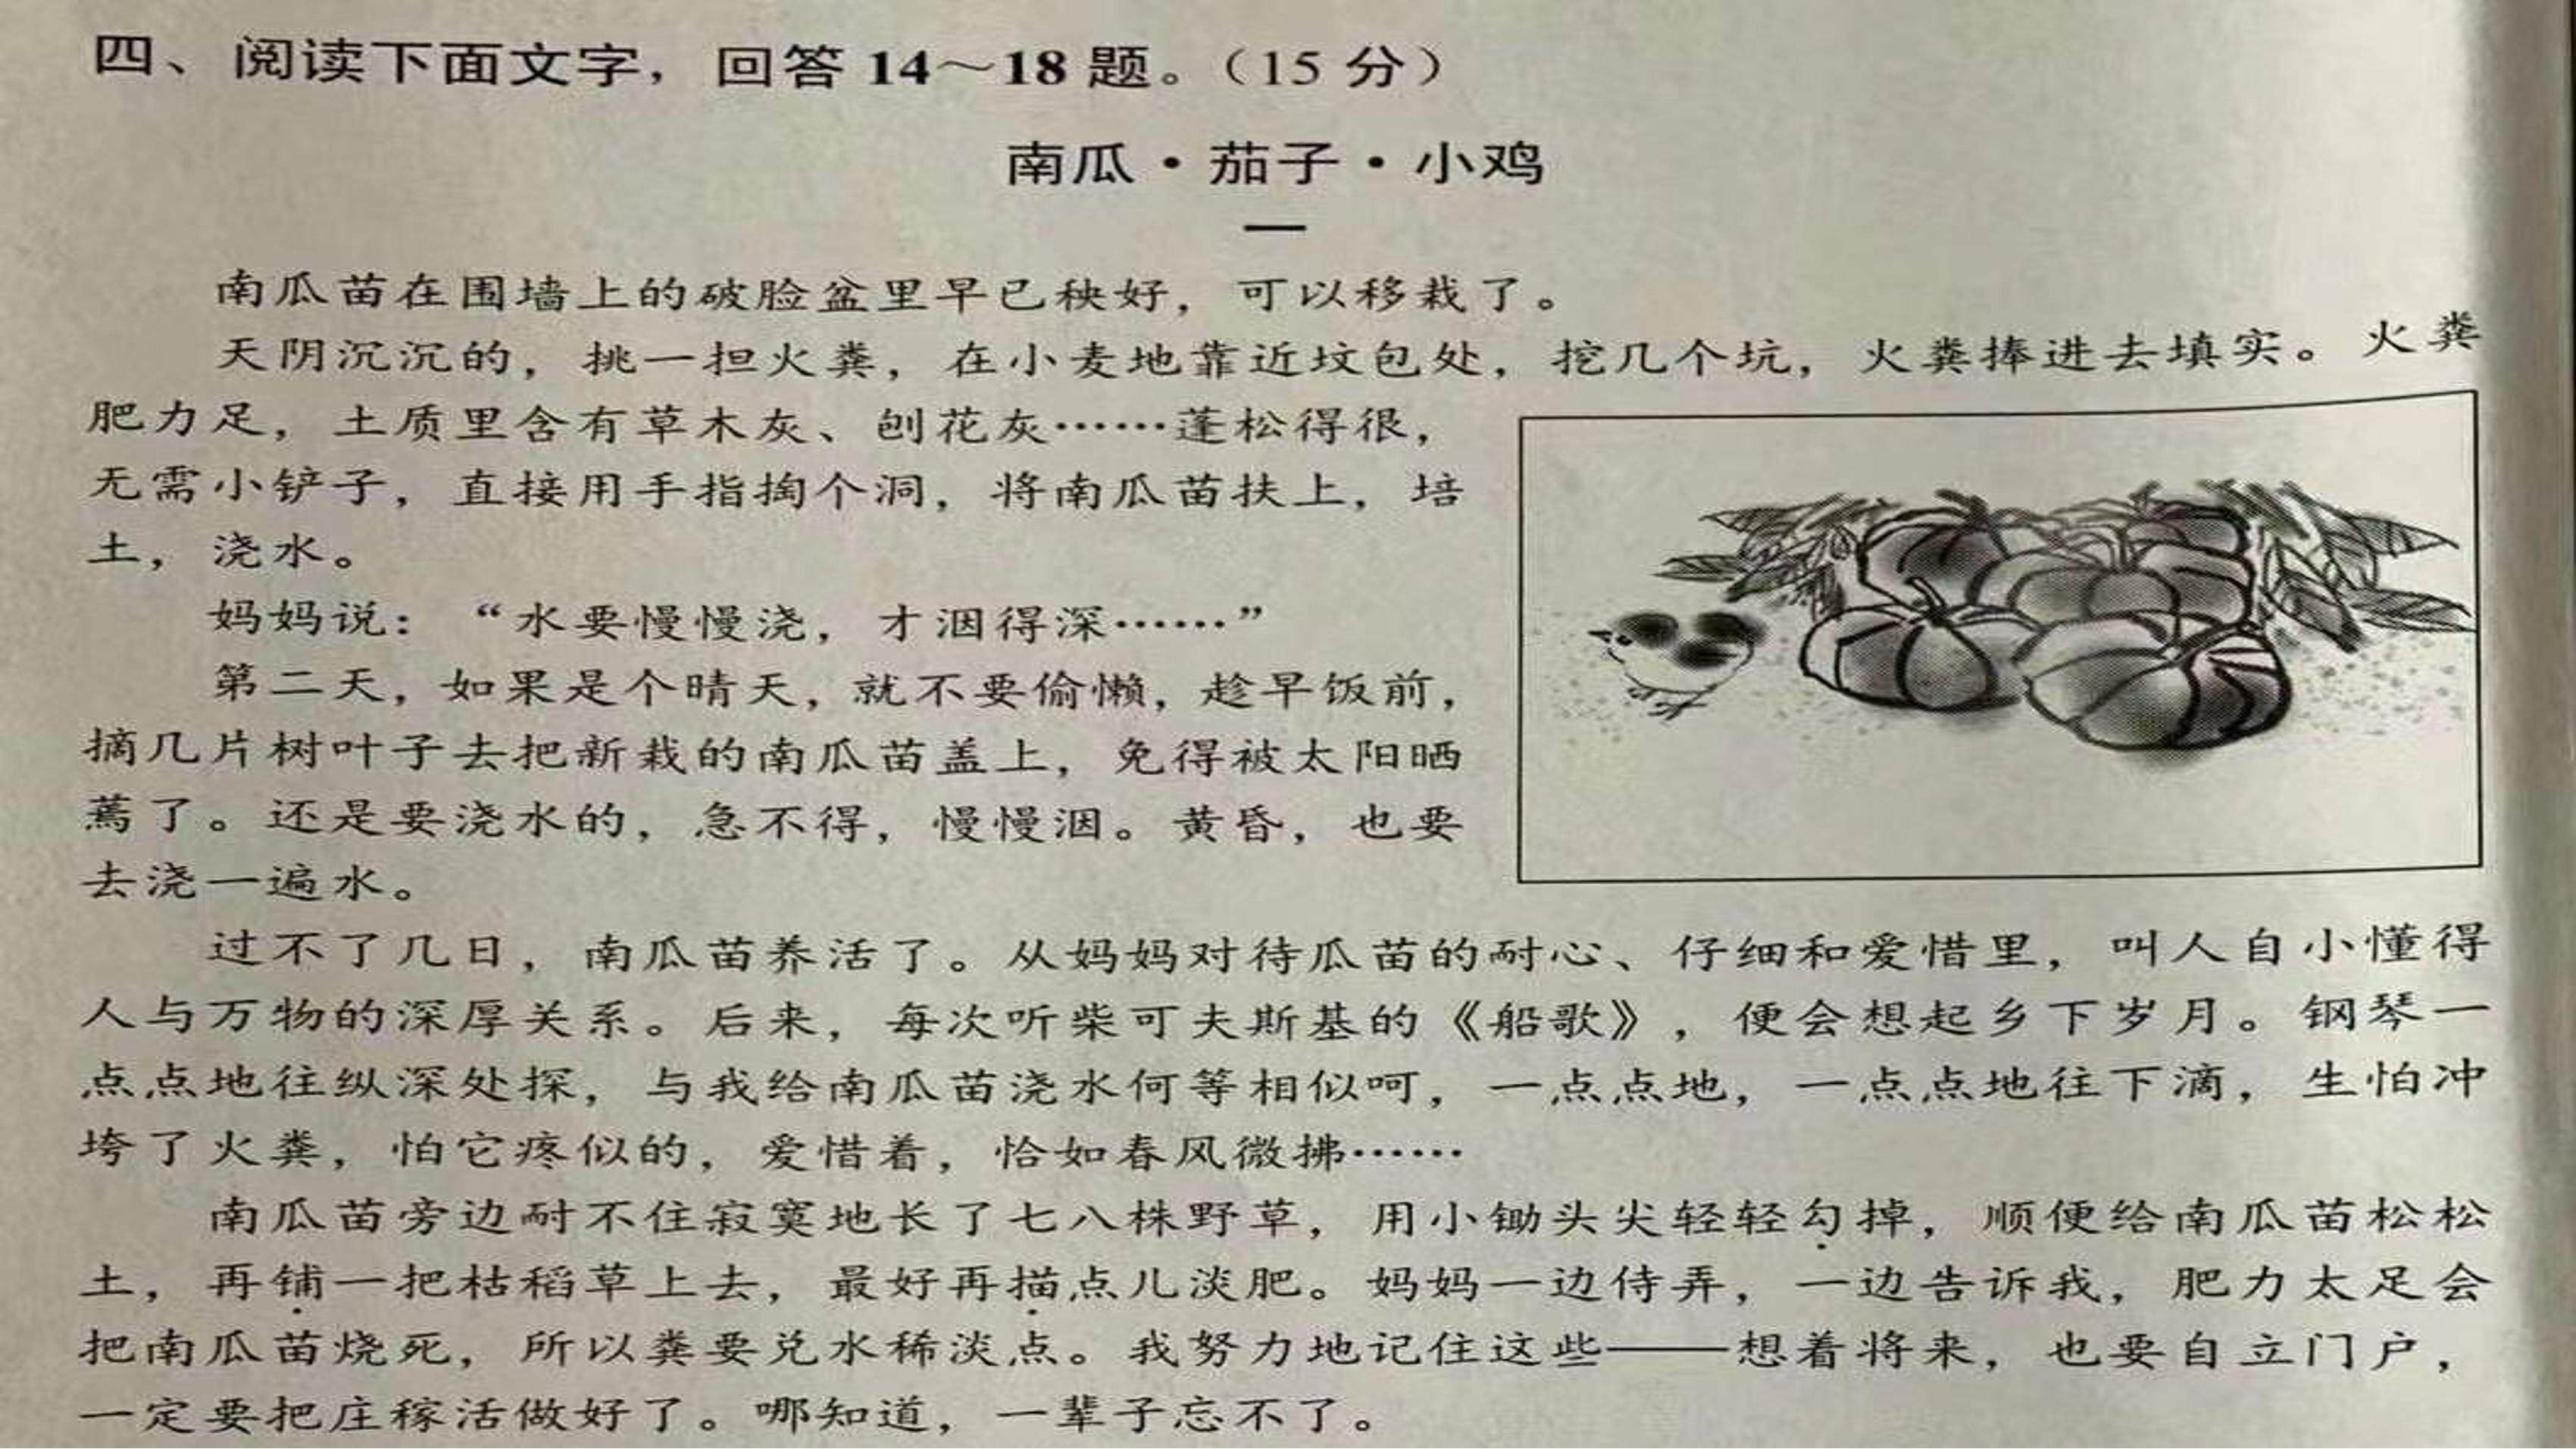 四、阅读下面文字，回答14～18题。（15分）
南瓜·茄子·小鸡
一
南瓜苗在围墙上的破脸盆里早已秧好，可以移栽了。
天阴沉沉的，挑一担火粪，在小麦地靠近坟包处，挖几个坑，火粪捧进去填实。火粪
肥力足，土质里含有草木灰、刨花灰……蓬松得很，
无需小铲子，直接用手指掏个洞，将南瓜苗扶上，培
土，浇水。
妈妈说：“水要慢慢浇，才洇得深……”
第二天，如果是个晴天，就不要偷懒，趁早饭前，
摘几片树叶子去把新栽的南瓜苗盖上，免得被太阳晒
蔫了。还是要浇水的，急不得，慢慢洇。黄昏，也要
去浇一遍水。
过不了几日，南瓜苗养活了。从妈妈对待瓜苗的耐心、仔细和爱惜里，叫人自小懂得
人与万物的深厚关系。后来，每次听柴可夫斯基的《船歌》，便会想起乡下岁月。钢琴一
点点地往纵深处探，与我给南瓜苗浇水何等相似呵，一点点地，一点点地往下滴，生怕冲
垮了火粪，怕它疼似的，爱惜着，恰如春风微拂……
南瓜苗旁边耐不住寂寞地长了七八株野草，用小锄头尖轻轻勾掉，顺便给南瓜苗松松
土，再铺一把枯稻草上去，最好再描点儿淡肥。妈妈一边侍弄，一边告诉我，肥力太足会
把南瓜苗烧死，所以粪要兑水稀淡点。我努力地记住这些——想着将来，也要自立门户，
一定要把庄稼活做好了。哪知道，一辈子忘不了。